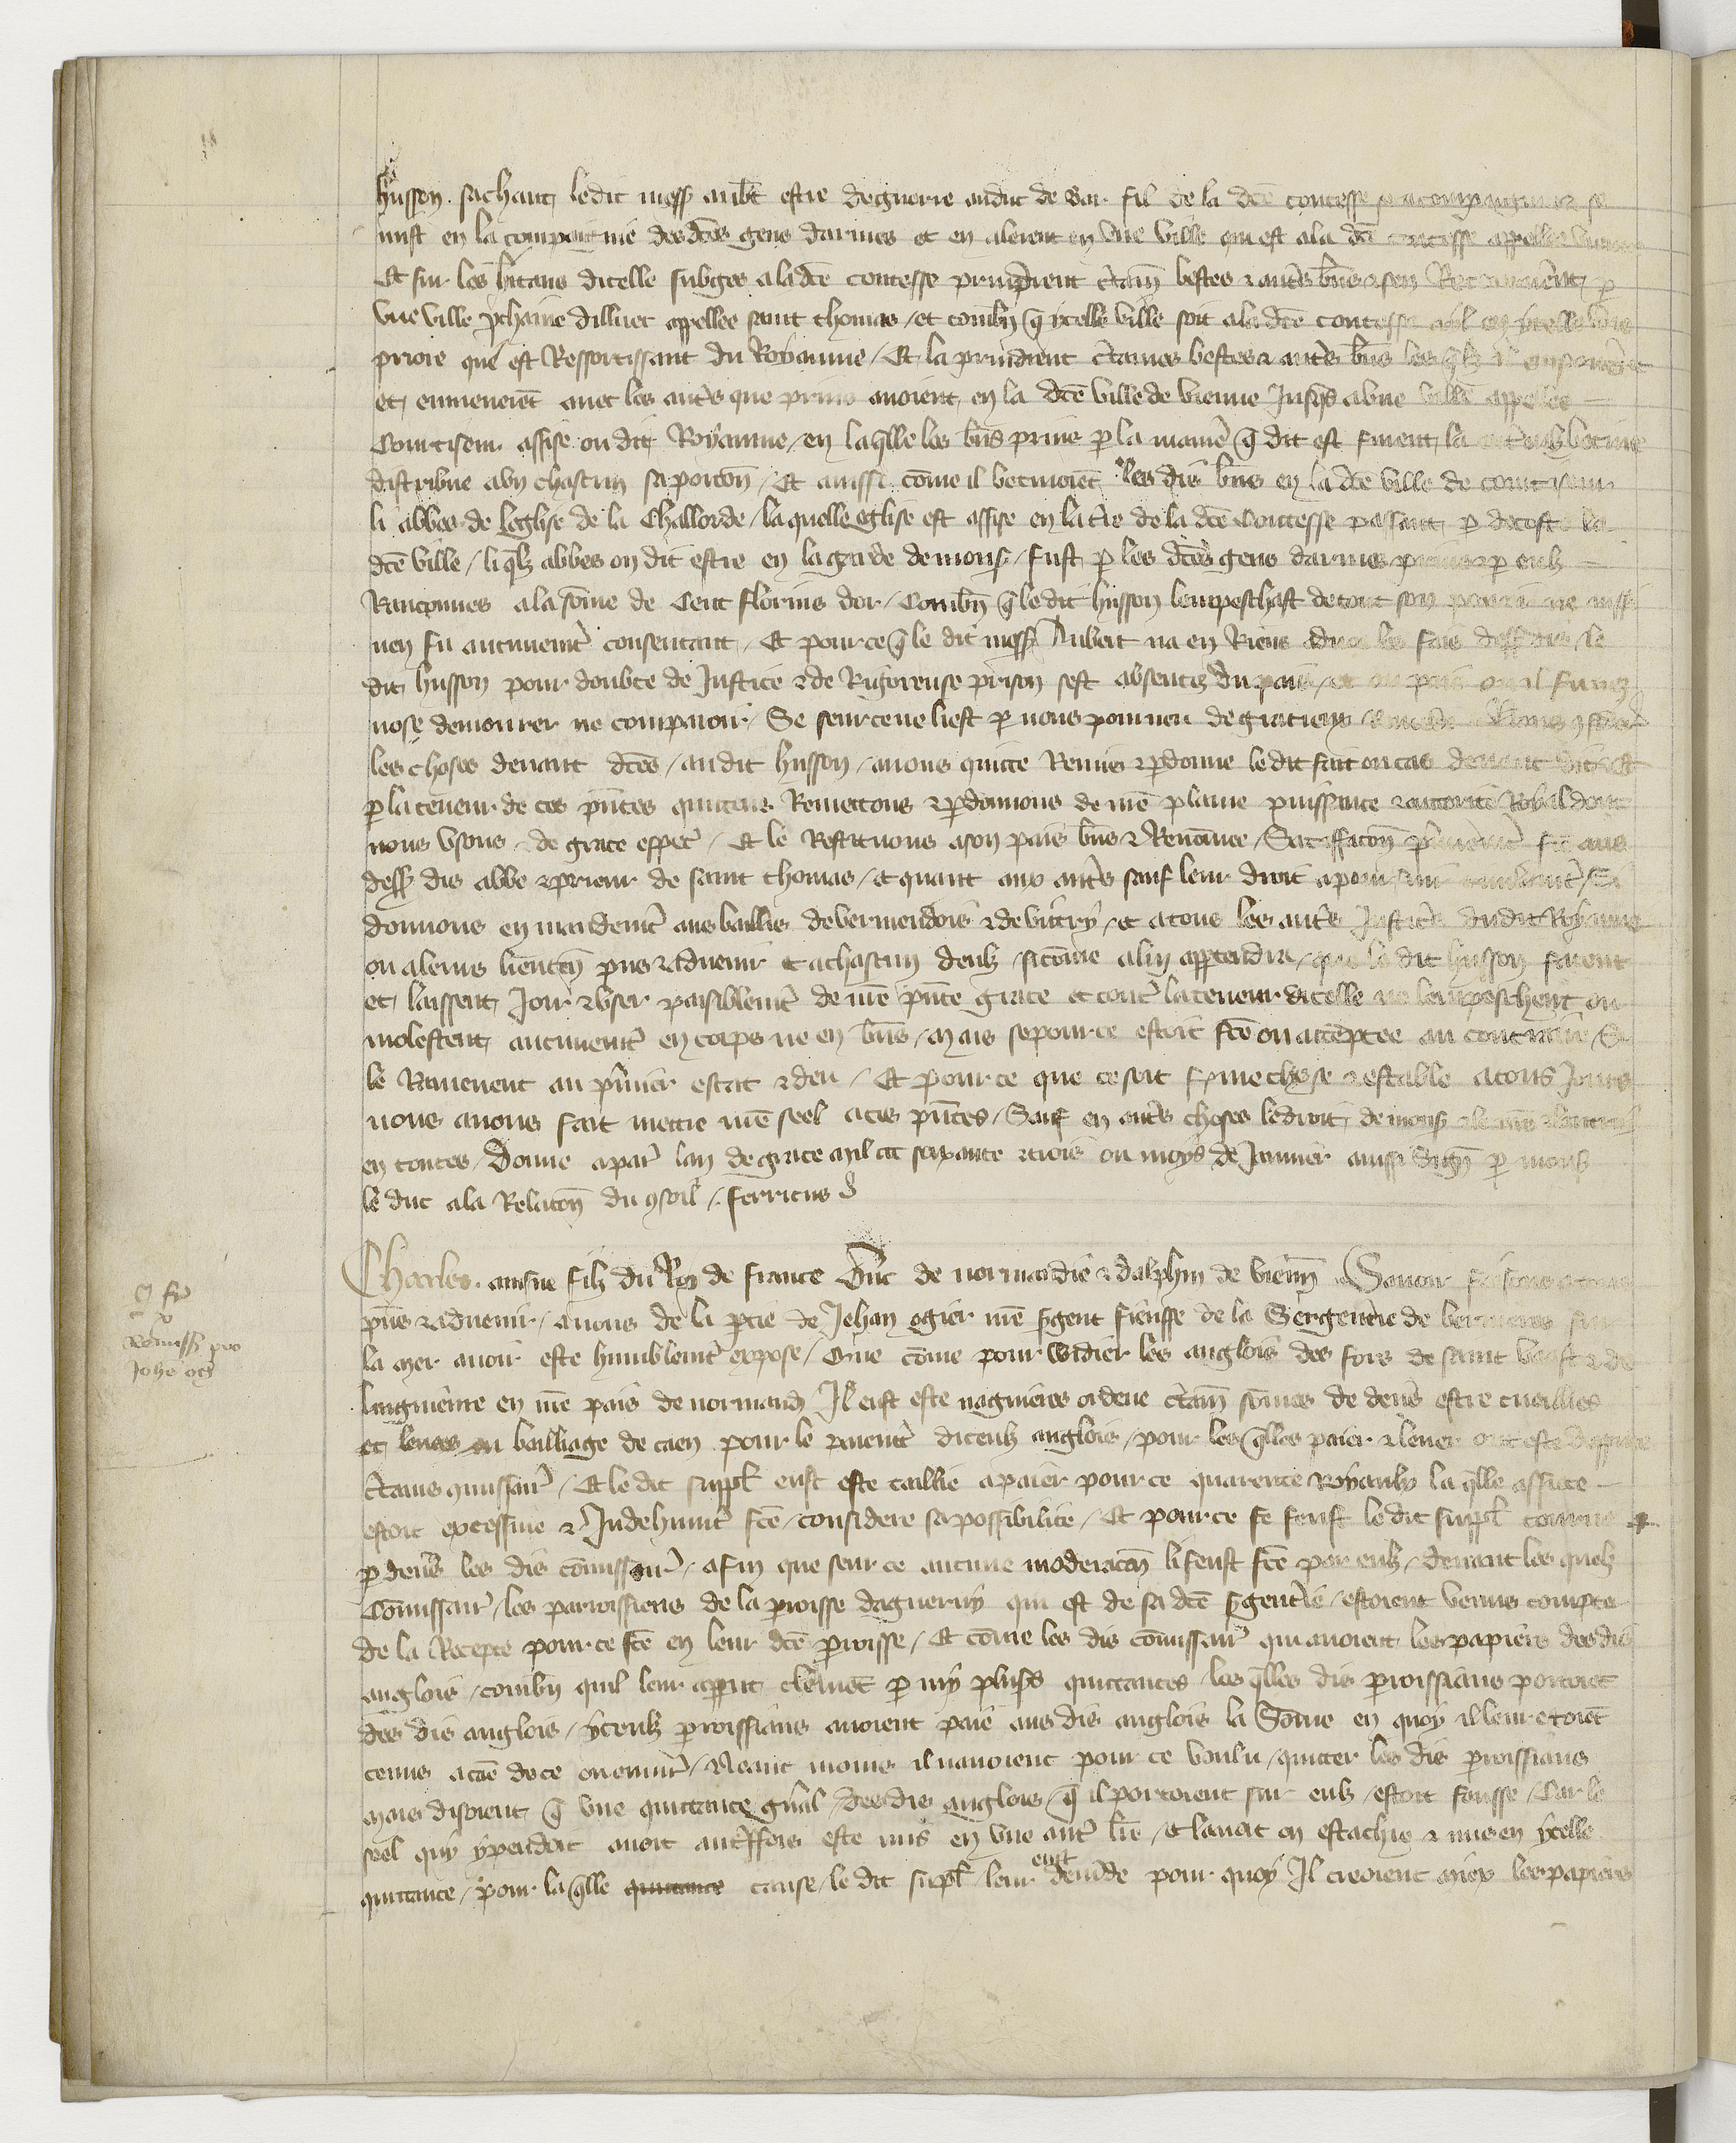 husson sachant ledit mess aub̄t estre de guerre au duc de bar fil de la dc̄e contesse se acompaigna et se
mist en la compaignie des dc̄es gens darmes et en alerent en une ville qui est a la dc̄e contesse appellee
Et sur les h̄itans dicelle subges a la dc̄e contesse prindrent c̄tain bestes et aut̄s b̄ns et sen Retournerent p
une ville p̄chaine dilluec appellee saint thomas / et combn̄ q̄ ycelle ville soit a la dc̄e contesse
priore qui est Ressortissant du Royaume / Et la prindrent c̄taines bestes et aut̄s b̄ns les q̄lz il emporterēt
et emmenerēt avec les aut̄s que prins avoient en la dc̄e ville de vienne Jusq̄s a une ville appellee
Courtiseur assise ou dit Royaume / en laq̄lle les b̄ns prins p la manie q̄ dit est furent
distribue a un chascun sa porcōn / Et aussi cōme il butinoiēt les dis b̄ns en la dc̄e ville de courtiseur
li abbes de leglise de la Challorde / la quelle eglise est assise en la t̄re de la dc̄e Contesse passant p decoste la
dc̄e ville / li q̄lz abbes on dit estre en la garde de mons / fust p les dc̄es gens darmes prins et p eulz
Ranconnes a la sōme de Cent florins dor / Combn̄ q̄ le dit husson lempeschast de tout son povoir ne aussi
nen fu aucunemt̄ consentant / Et pour ce q̄ le dit mess Aubert na en Riens les fais dess dis / le
dit husson pour doubte de Justice et de Rigoreuse prison sest absentes du pais
nose demourer ne comparoir / Se seur ce ne li est p nous pourveu de gracieux
les choses devant dc̄es / au dit husson / avons quicte Remis et pdonne le dit fait ou cas devant dit / Et
p la teneur de ces pn̄tes quictons Remectons et pdonnons de nr̄e plaine puissance et auctorite Royal dont
nous usons de grace esp̄al / Et le Restituons a son pais b̄ns et Renōmee / Satisfacōn
dess dis abbe et prieur de saint thomas / et quant aux aut̄s sauf leur droit a poursuir civilemt̄ / Si
donnons en mandemt̄ aus baillis de vermendois et de vitry / et a tous les aut̄s Justic̄s du dit Royaume
ou a leurs lieuten̄ pn̄s et advenir et a chascun deulz / si cōme a lui appartendra / que le dit husson facent
et laissent Joir et user paisiblemt̄ de nr̄e pn̄te grace et contr̄ la teneur dicelle ne lempeschent ou
molestent aucunemt̄ en corps ne en b̄ns / mais se pour ce estoit fc̄e ou actēptee au contraire
le Ramenent au pmier estat et deu / Et pour ce que ce soit ferme chose et estable a tous Jours
nous avons fait mettre nr̄e seel a ces pn̄tes / Sauf en aut̄s choses le droit de mons
en toutes / Donne a par̄ lan de grace mil ccc sexante et trois ou moys de Janvier ainssi sign̄ p mons
le duc a la Relacōn du 9seil / ferricus
Charles. ainsne filz du Roy de france Duc de normandie et dalphin de vienn̄ Savoir faisons a tous
pn̄s et advenir / avons de la ptie de Jehan ogier nr̄e sgent fieuffe de la Sergenterie de bernieres sur
la mer avoir este humblemt̄ expose / Que cōme pour widier les anglois des fors de saint vaast et de
lingnievre en nr̄e pais de normand Il eust este nagueires ordene c̄tain sōmes de deniers estre cueillies
et levees ou bailliage de caen pour le paiemt̄ diceulz anglois / pour les q̄lles paier et lever ont este deppute
c̄tains 9missair̄ / Et le dit suppl̄ eust este taillie a paier pour ce quarente royaulx la q̄lle assiete
estoit excessive et Induehumt̄ fc̄e / considere sa possibilite / Et pour ce se feust le dit suppl̄
p devers les dis cōmissair̄ / afin que seur ce aucune moderacōn li feust fc̄e par eulz / devant les quelz
Cōmissair̄ / les parroissiens de la proisse daguerny qui est de sa dc̄e sgent̄ie / estoient venus compter
de la Recepte pour ce fc̄e en leur dc̄e proisse / Et cōme les dis cōmissair̄ qui avoient les papiers des dis
anglois / combn̄ quil leur apput clerem̄t p my plus̄s quictances / les q̄lles dis proissians portoiēt
des dis anglois / yceulz proissians avoient paie aus dis anglois la Sōme en quoy il leur etoiēt
tenus a cāe de ce / Neant moins il navoient pour ce voulu quicter les dis proissians
mais disoient q̄ une quictance gn̄al des dis anglois / q̄ il portoient sur eulz / estoit fausse / Car le
seel quy y pendoit avoit aut̄ffois este mis en une aut̄ lr̄e / et lavoit on estachie et mis en ycelle
quictance / pour la q̄lle quictance cause / le dit suppl̄ leur eust demāde pour quoy Il creoient miex les papiers
Remiss̄ pro
Joh̄e oḡ